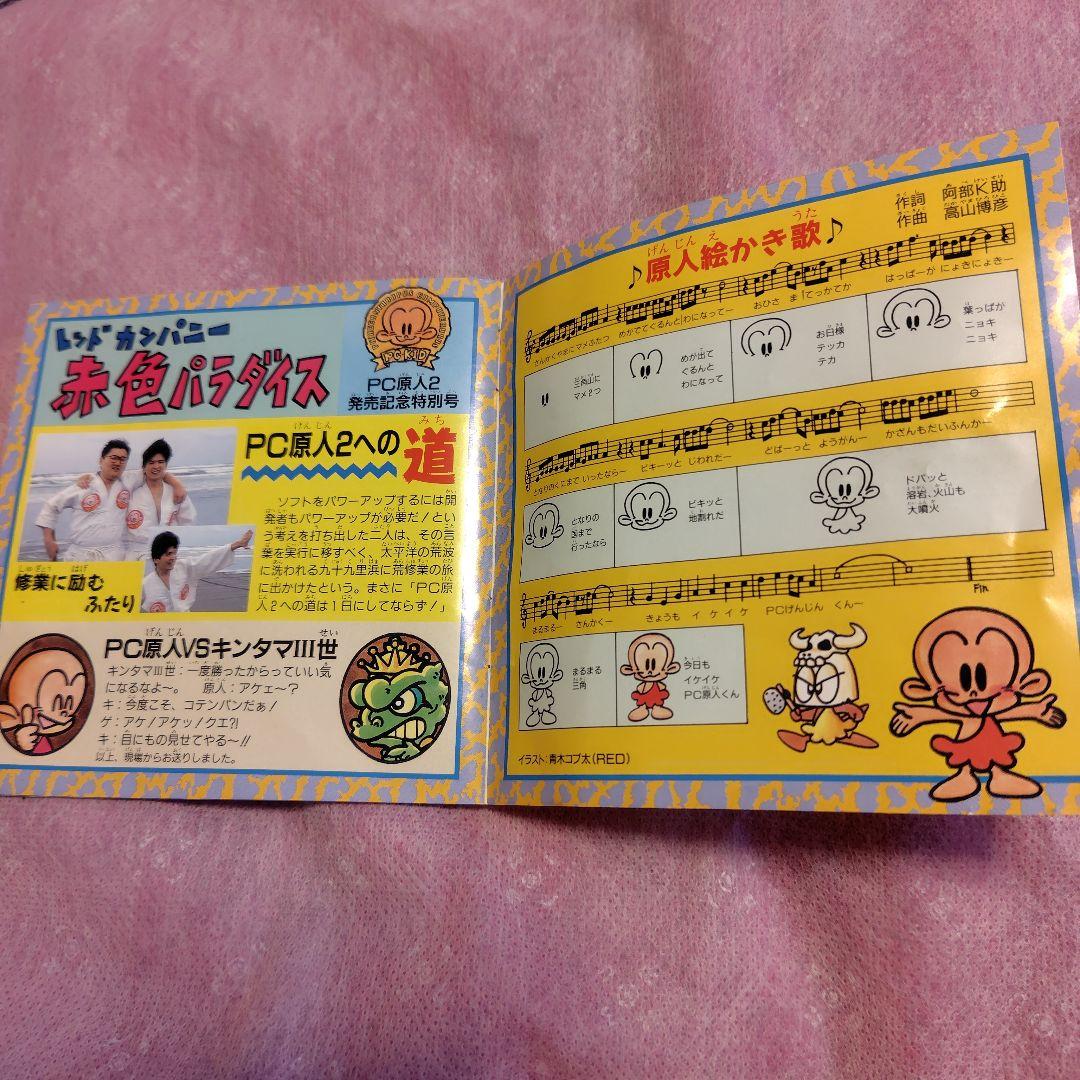 レッドカンパニー
赤色パラダイス
PC KID
PC原人2
発売記念特別号
PC原人2への道
ソフトをパワーアップするには開
発者もパワーアップが必要だ!とい
う考えを打ち出した二人は、その言
葉を実行に移すべく、太平洋の荒波
に洗われる九十九里浜に荒修業の旅
に出かけたという。まさに「PC原
人2への道は1日にしてならず!」
修業に励む
ふたり
PC原人VSキンタマIII世
キンタマIII世:一度勝ったからっていい気
になるなよ〜。 原人:アケェ〜?
キ:今度こそ、コテンパンだぁ!
ゲ:アケ!アケッ!クエ?!
キ:目にもの見せてやる〜!!
以上、現場からお送りしました。
♪原人絵かき歌♪
作詞 阿部K助
作曲 高山博彦
さんかくやまにマメふたつ めがでてぐるんとわになってー おひさ まってっかてか はっぱーが にょきにょきー
三角山に
マメ2つ
めが出て
ぐるんと
わになって
お日様
テッカ
テカ
葉っぱが
ニョキ
ニョキ
となりのくにまで いったならー ピキーッと じわれだー どばーっと ようがんー かざんもだいふんかー
となりの
国まで
行ったなら
ピキッと
地割れだ
ドバッと
溶岩、火山も
大噴火
まるまるー さんかくー きょうも イケイケ PCげんじん くんー
Fin
まるまる
三角
今日も
イケイケ
PC原人くん
イラスト:青木コブ太(RED)